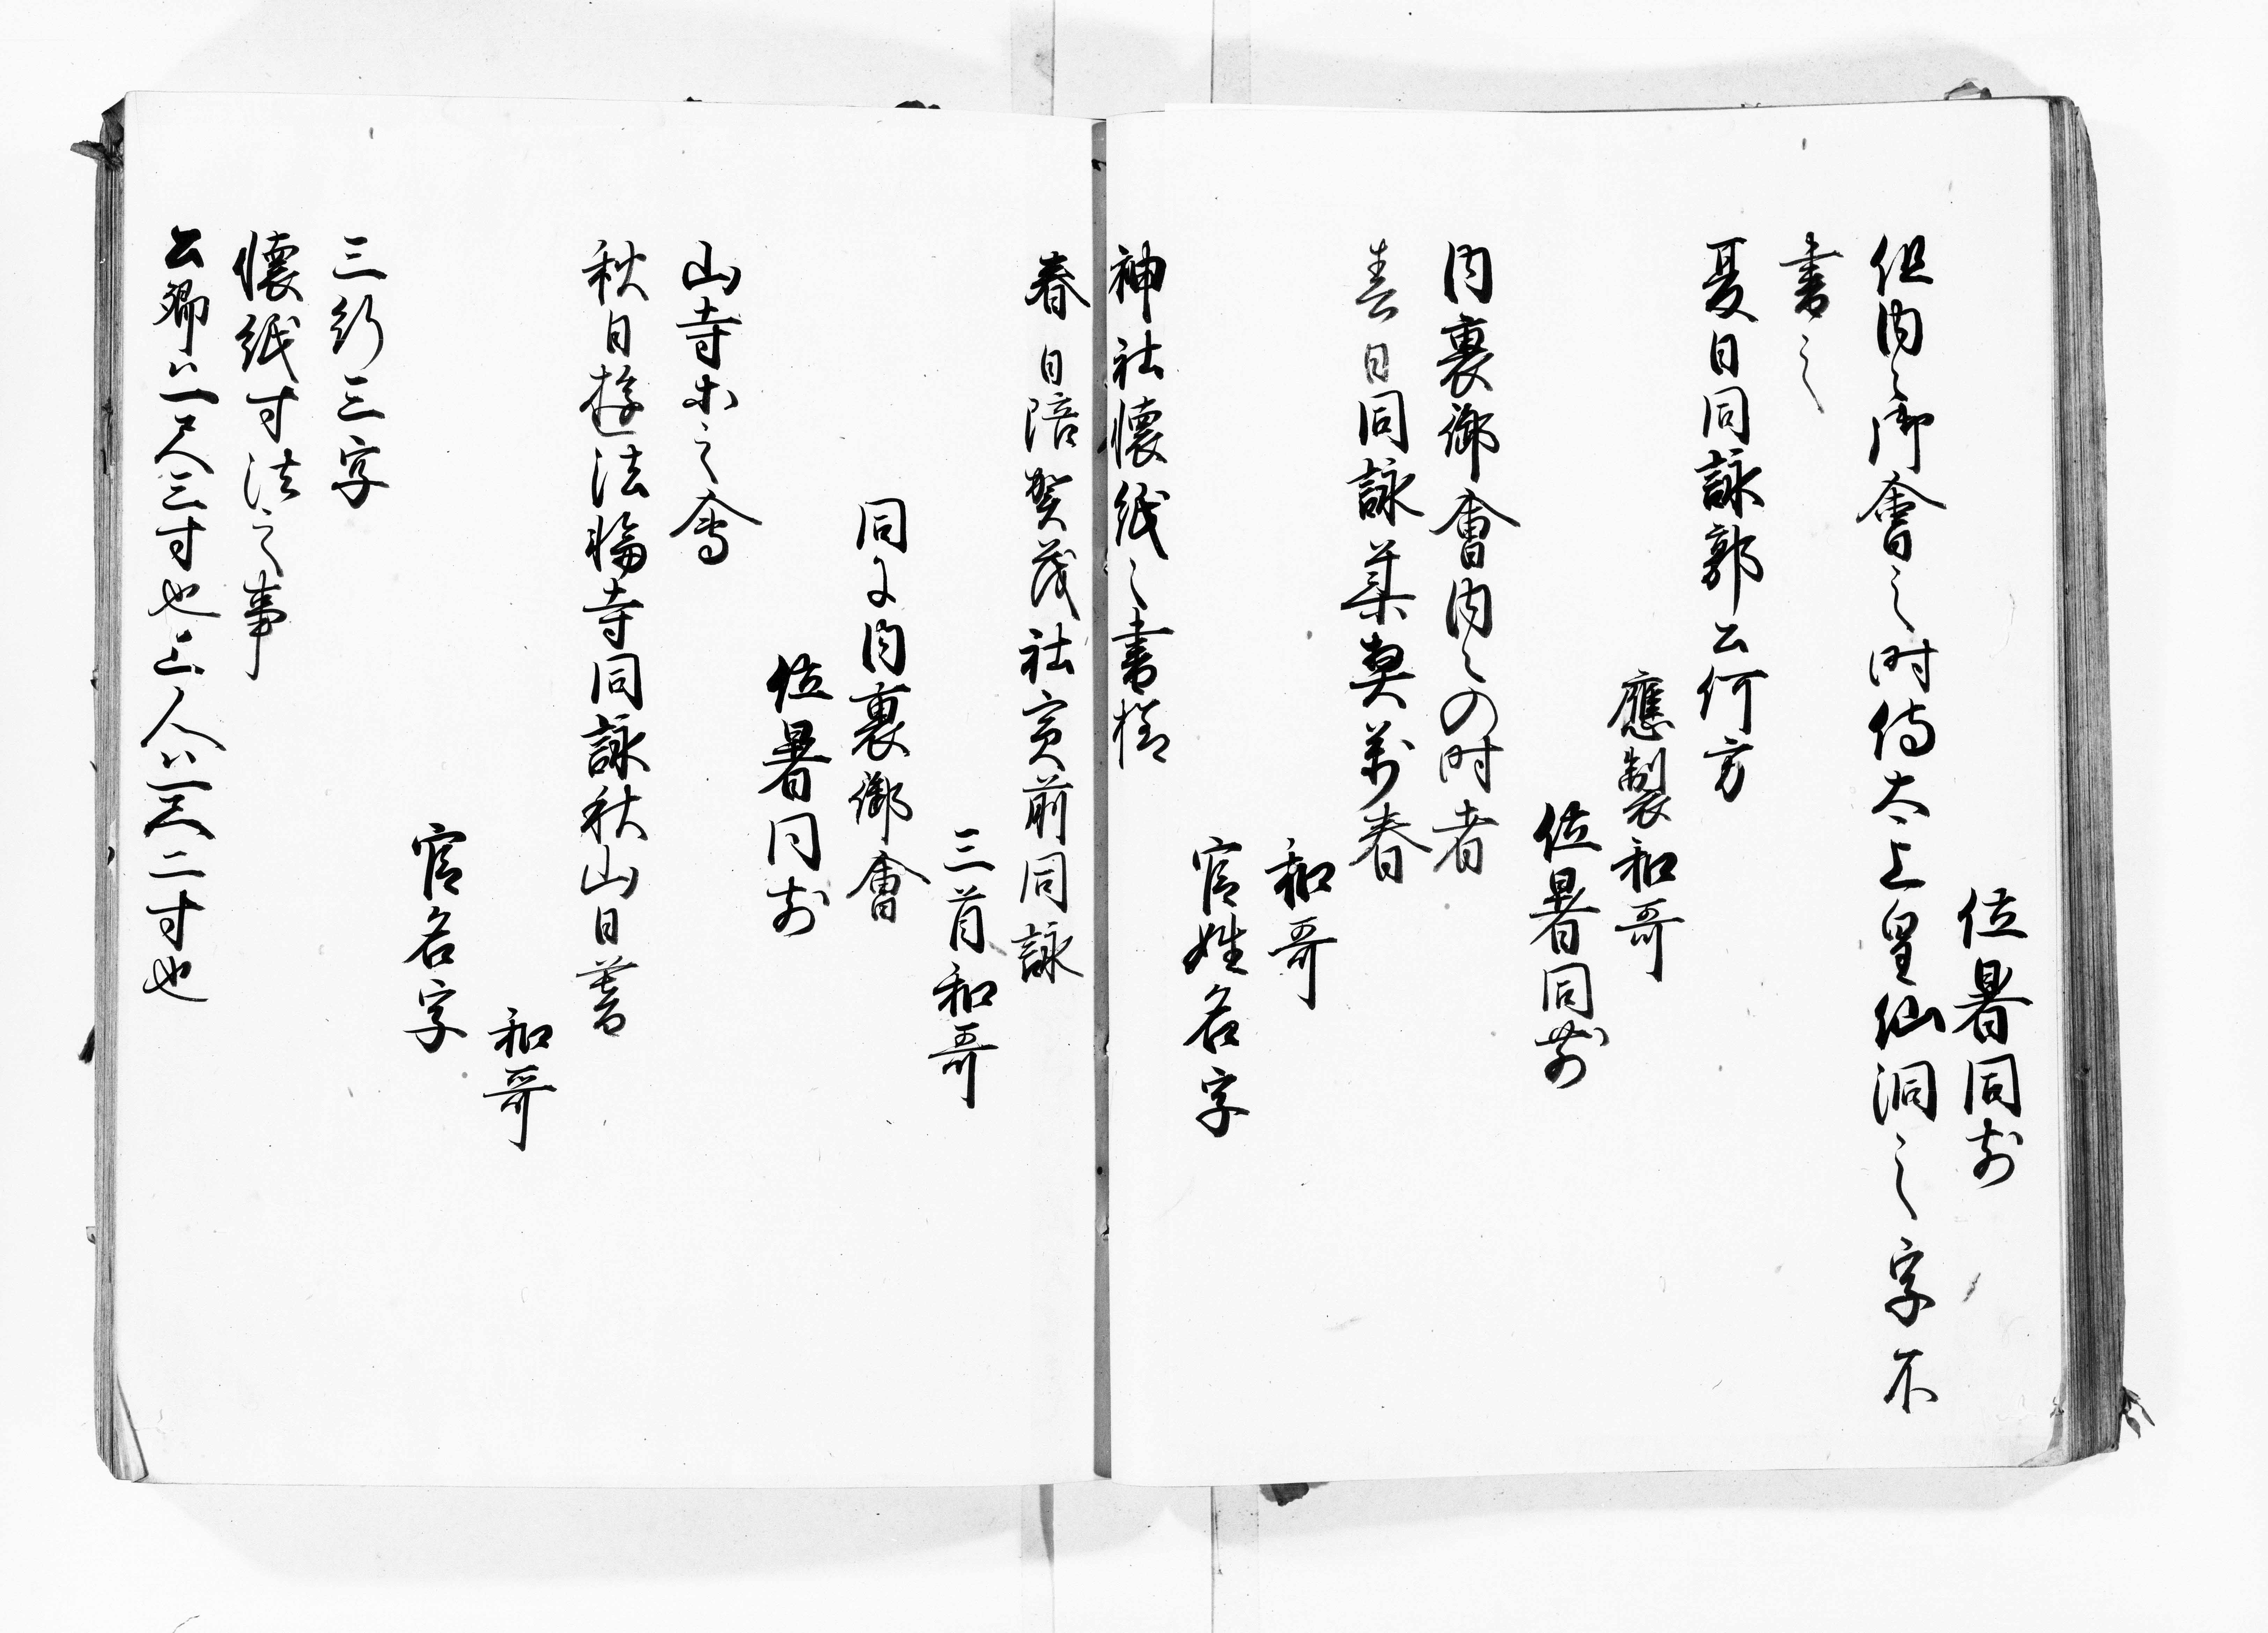 位署同前
但内々御會之時侍太上皇仙洞之字不
書之
夏日同詠郭公何方
應製和哥
位署同前
内裏御會内々の时者
春日同詠葉契万春
和哥
官姓名字
神社懐紙之書様
春日陪賀茂社寳前同詠
三首和哥
同于内裏御會
位署同前
山寺ホ之會
秋日遊法輪寺同詠秋山日暮
和哥
官名字
三行三字
懐紙寸法之事
公卿ハ一尺三寸也上人ハ一尺二寸也